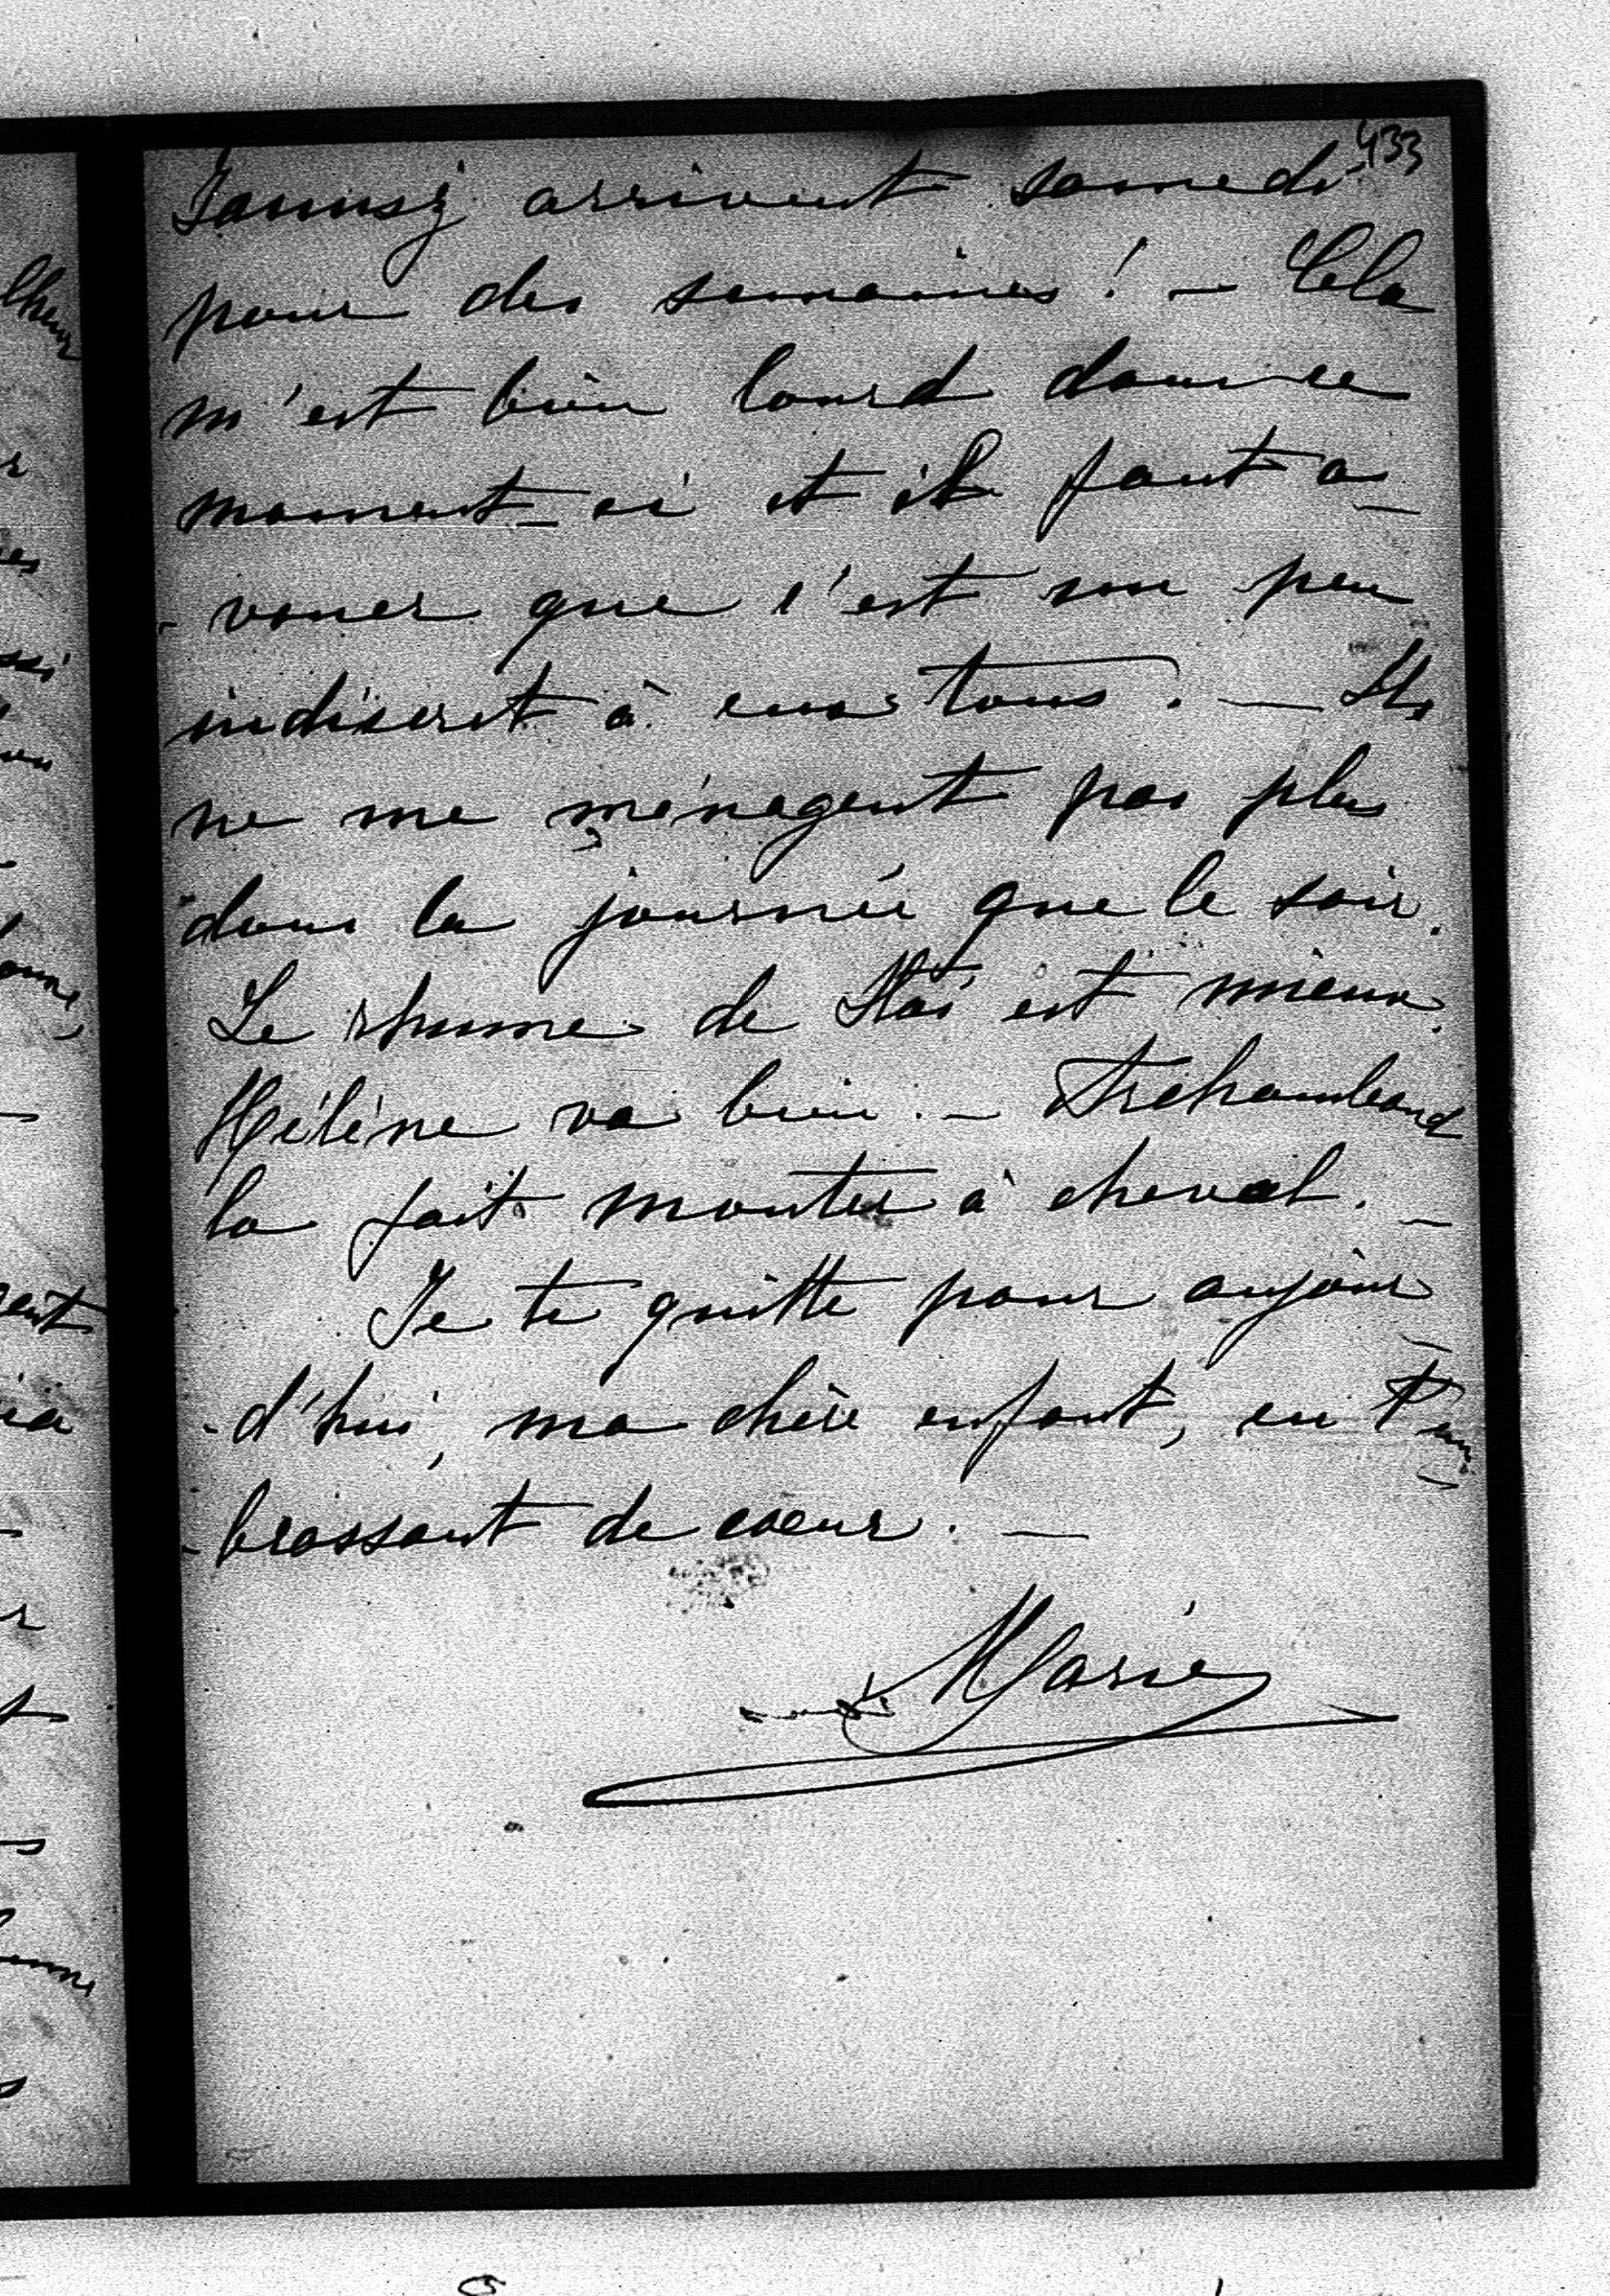 433
Janusz arrivent samedi
pour des semaines ! — Cela
m'est bien lourd dans ce
moment-ci et il faut a-
-vouer que c'est un peu
indiscret à eux tous. — Ils
ne me ménagent pas plus
dans la journée que le soir.
Le rhume de Staś est mieux.
Hélène va bien. — Tréchambaud
la fait monter à cheval. —
Je te quitte pour aujour-
-d'hui, ma chère enfant, en t'em-
-brassant de cœur. —
Marie